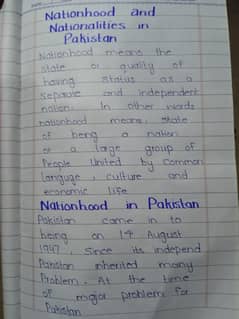 Nationhood and
Nationalities in
Pakistan
Nationhood means the
state or quality of
having status as a
separate and independent
nation. In other words
nationhood means, state
of being a nation
or a large group of
People United by Common
language, culture and
economic life
Nationhood in Pakistan
Pakistan came in to
being on 14 August
1947, Since its independ
Pakistan inherited many
Problem. At the time
of major problem for
Pakistan